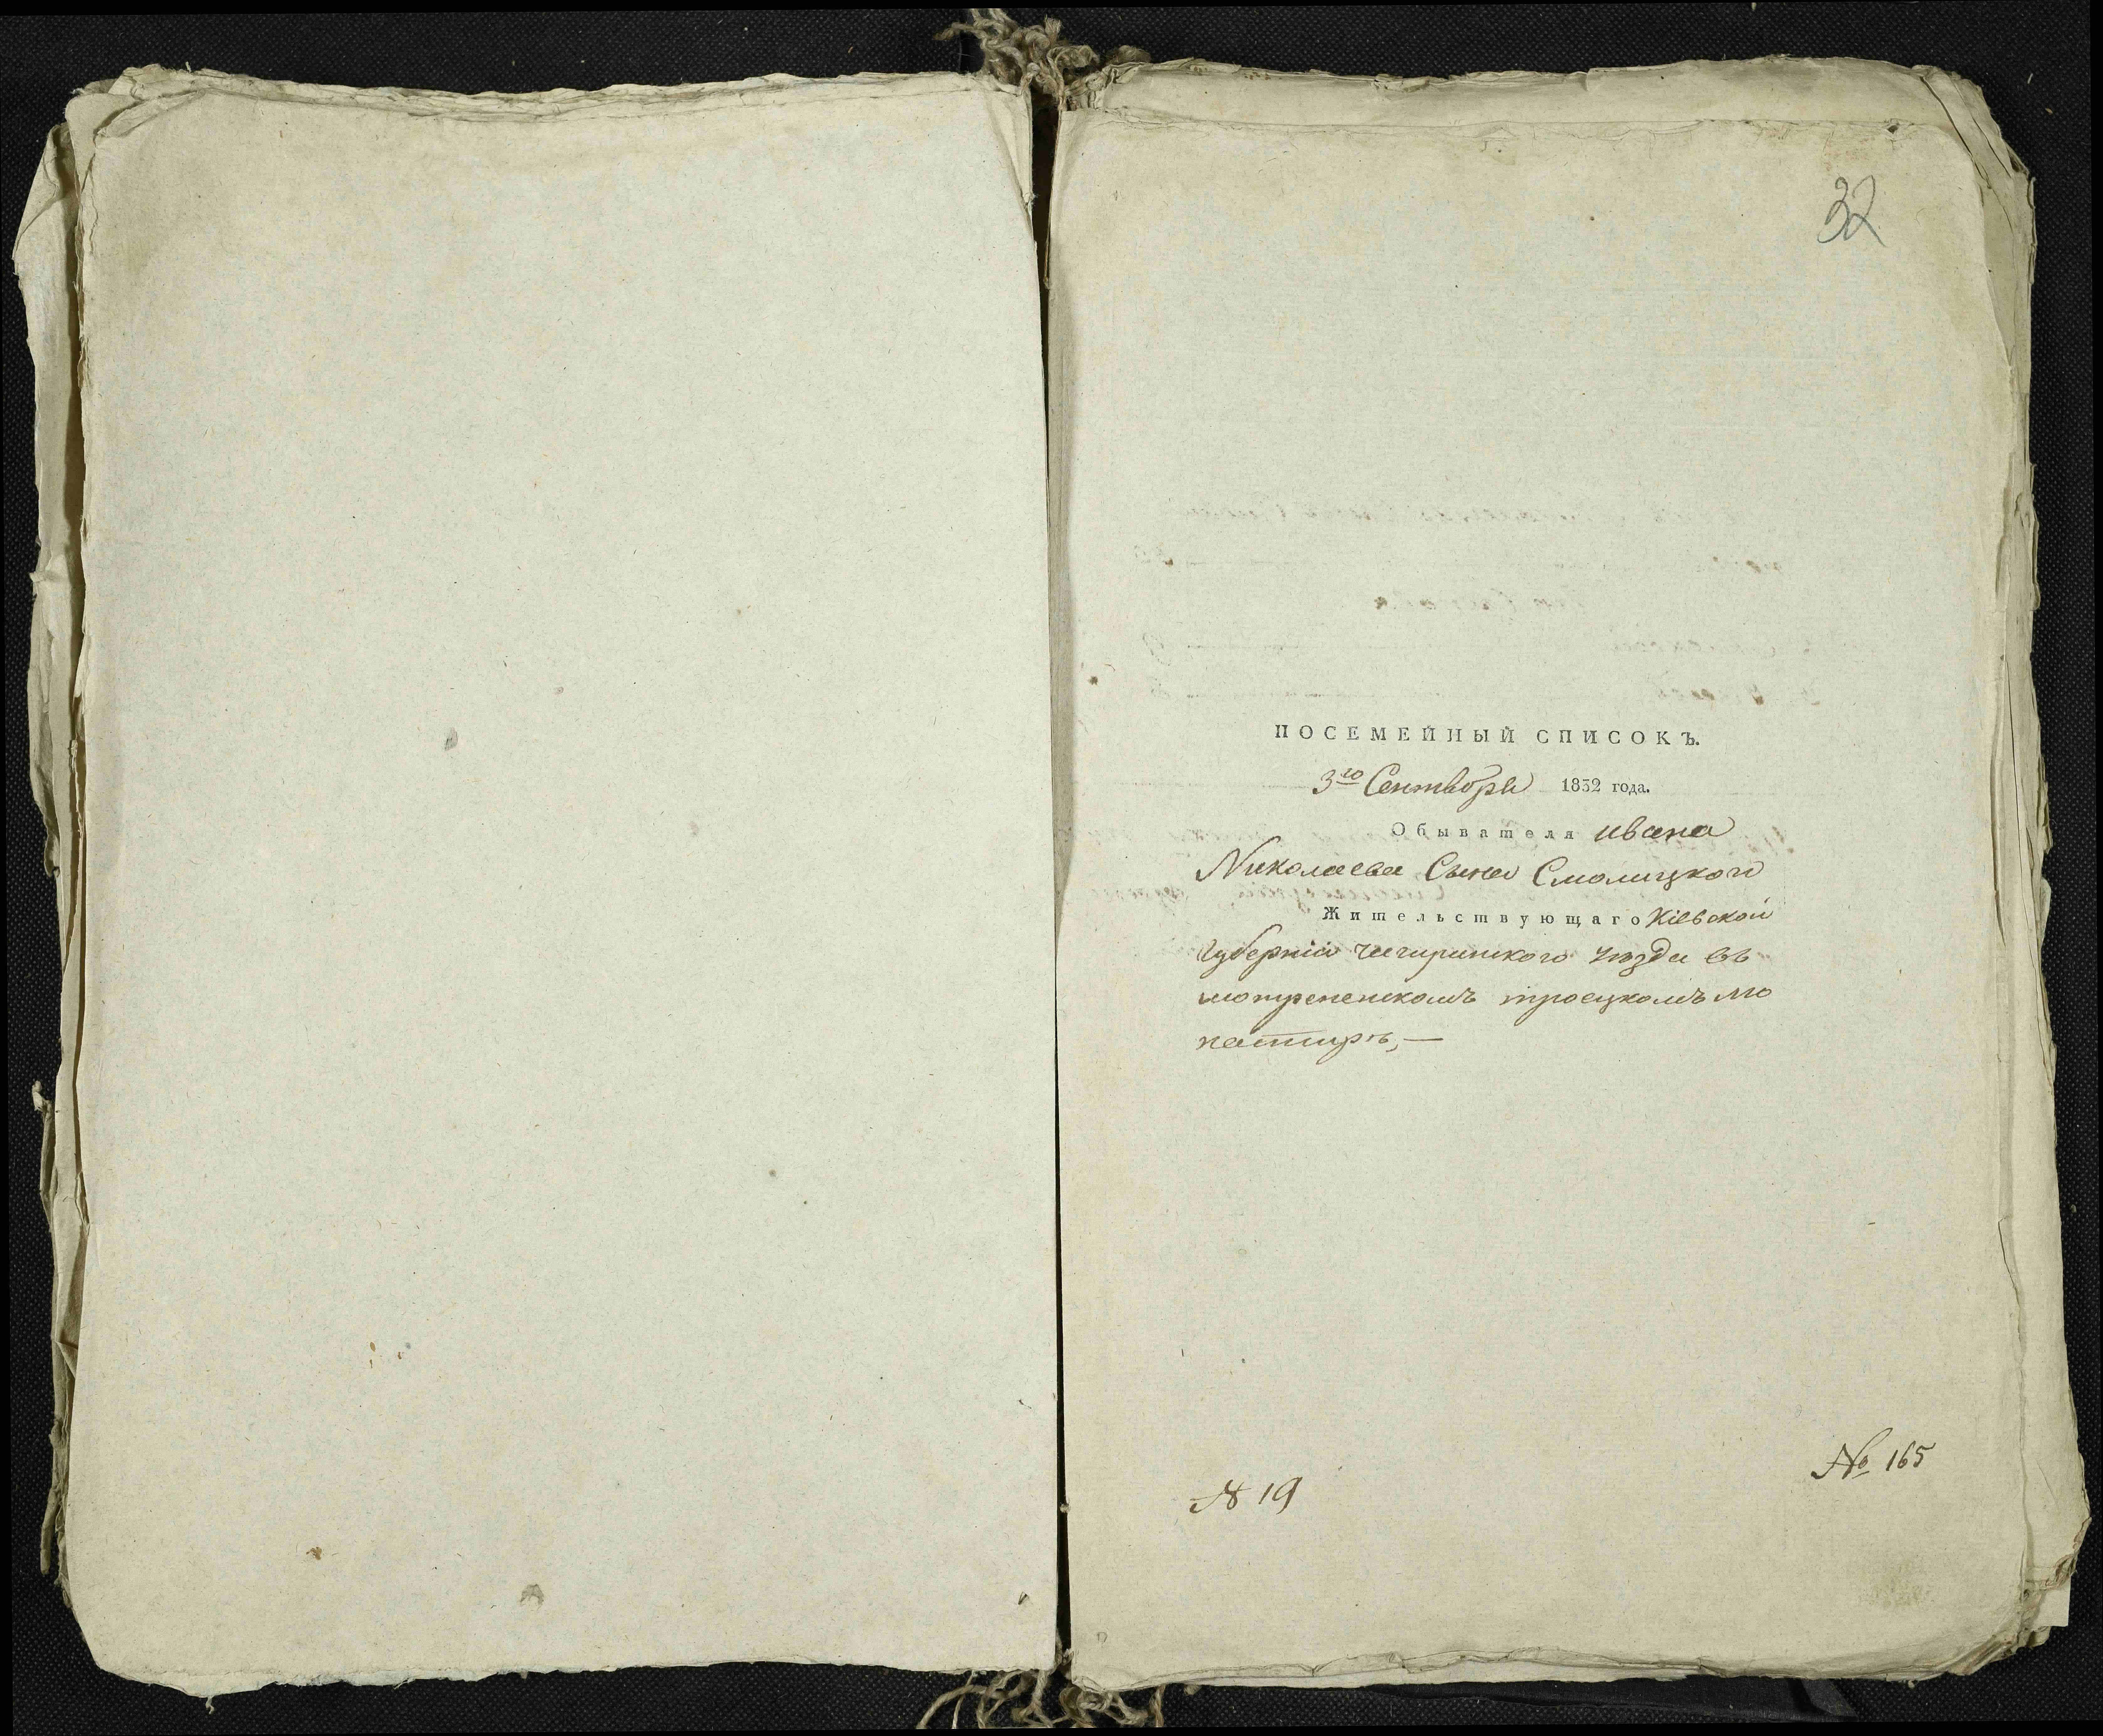 32
ПОСЕМЕЙНЫЙ СПИСОКЪ.
3го Сентября 1832 года.
Обывателя Ивана
Николаева Сына Смолицкого
Жительствующаго Кіевской
Губерніи Чигиринского уѣзда въ
мотрененскомъ троецкомъ мо
настирѣ,—
№ 19
№ 165